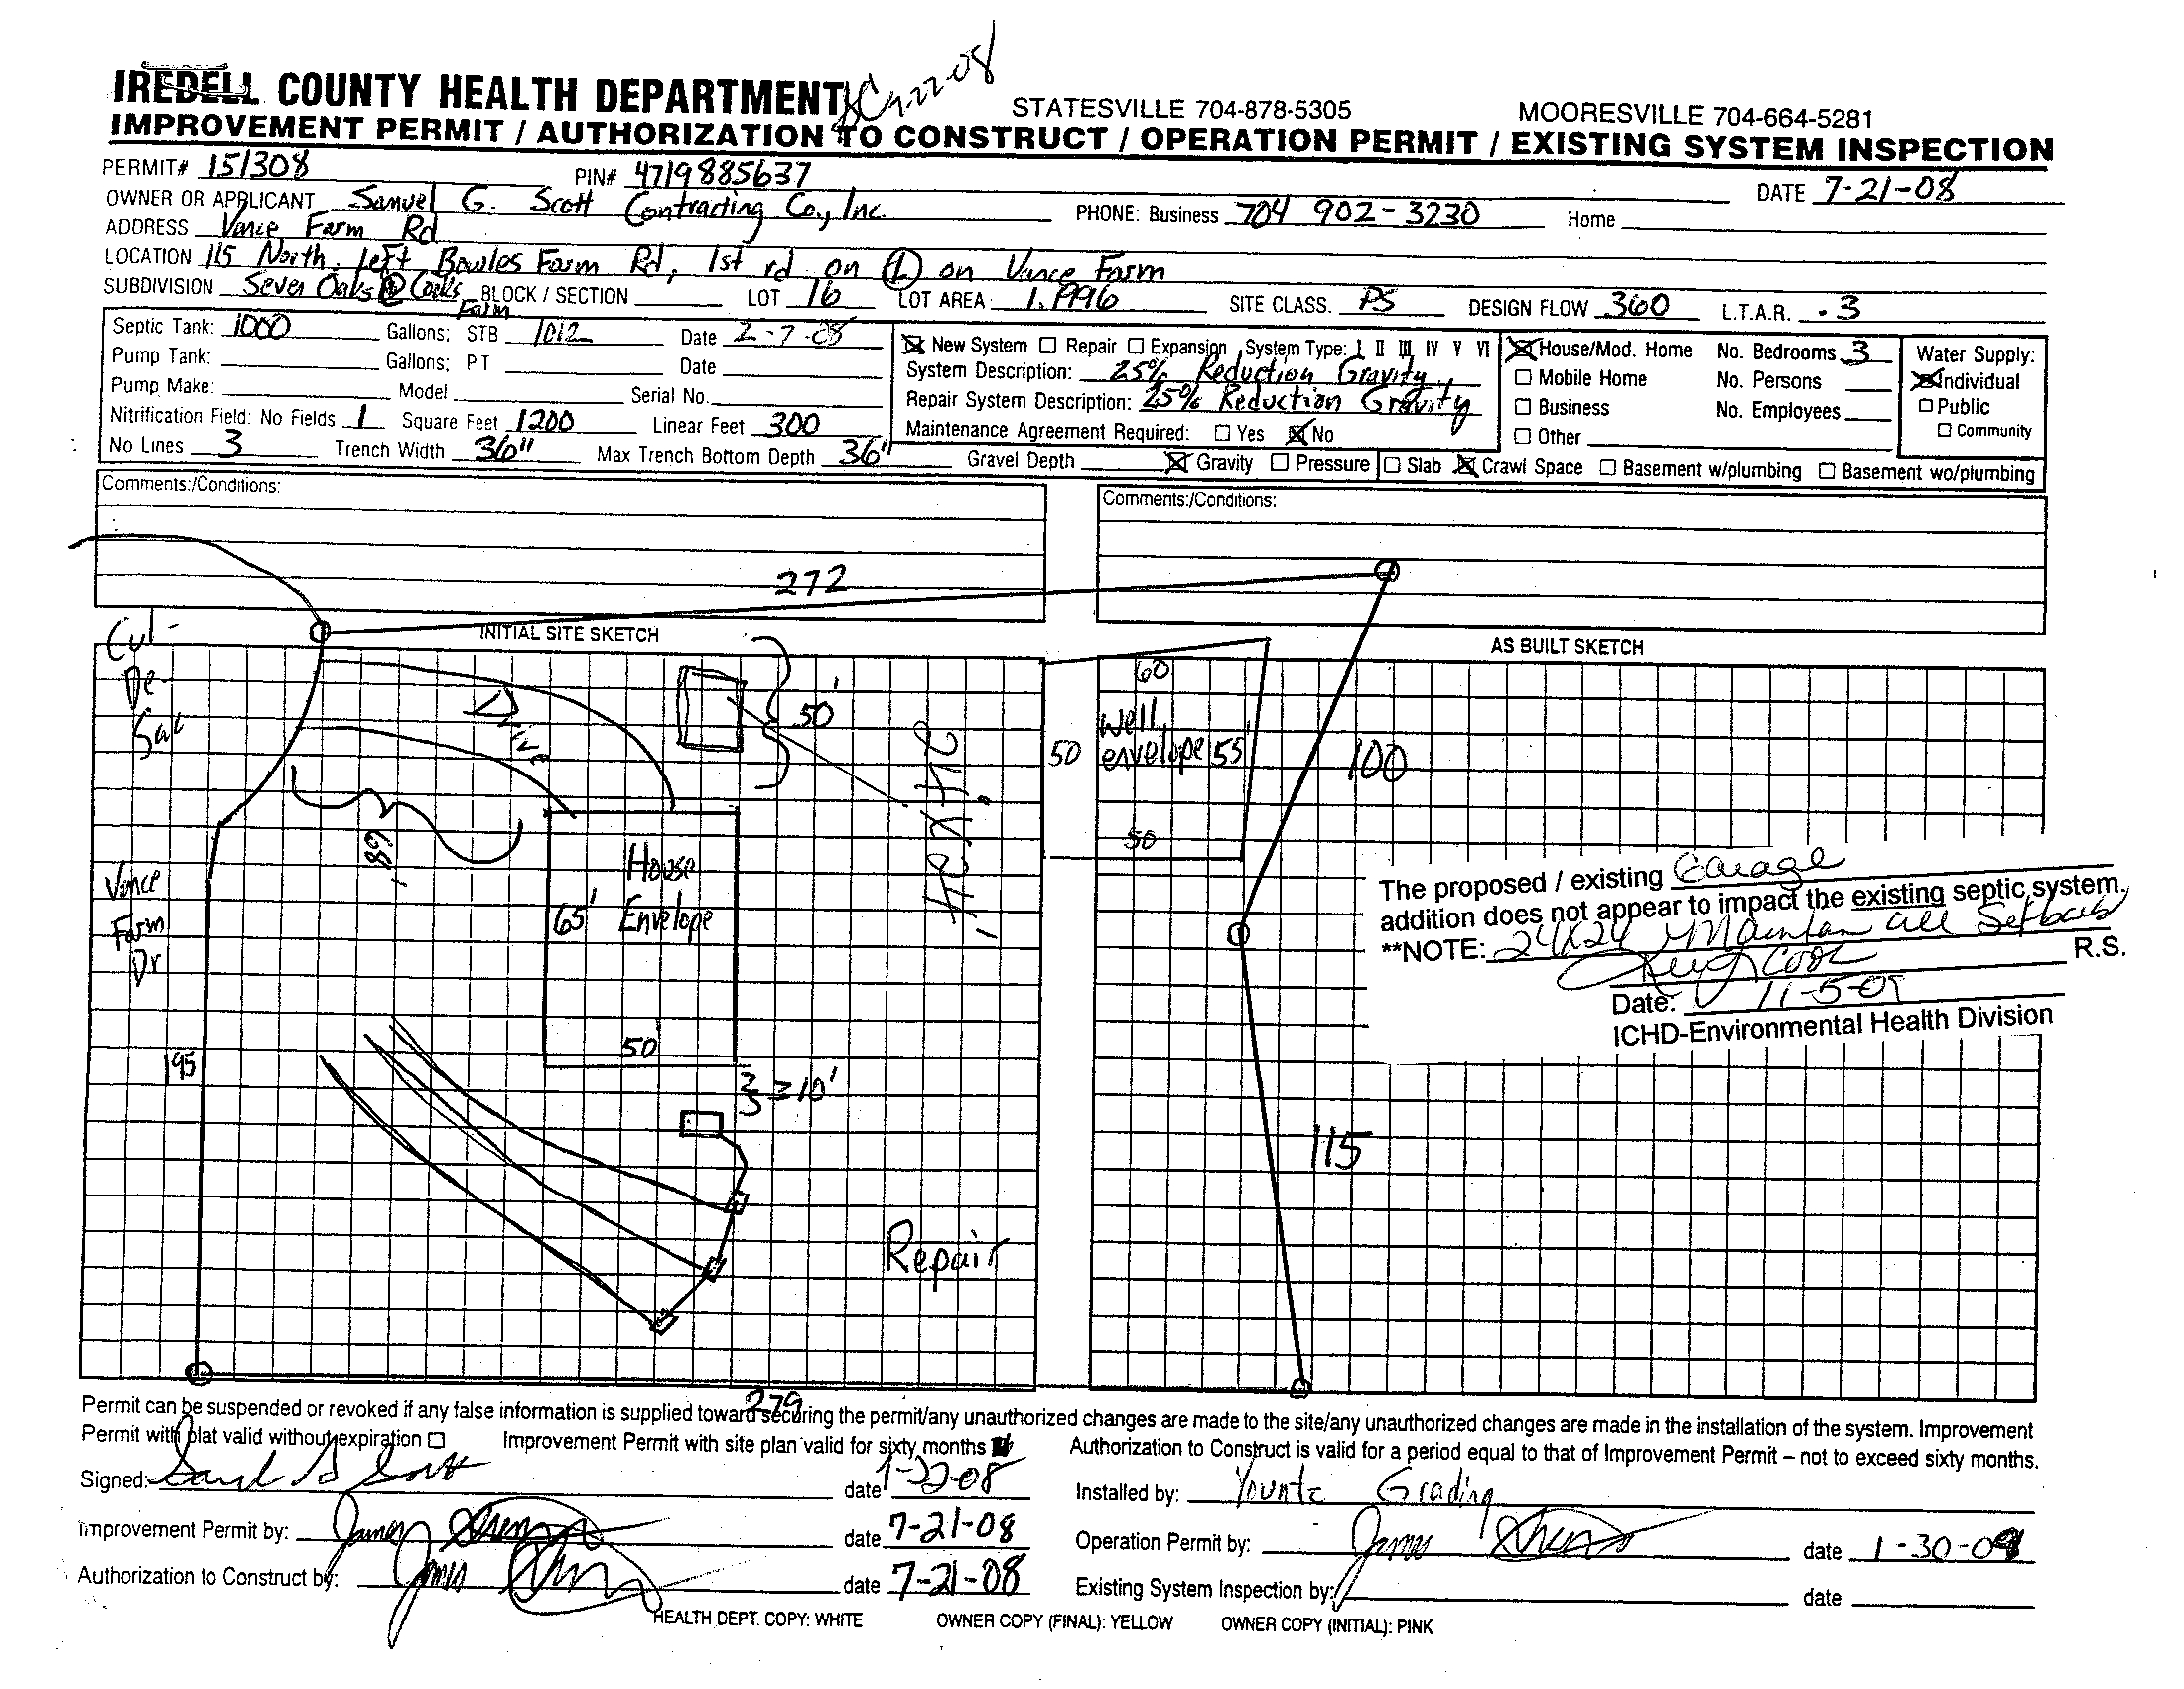 IREDELL COUNTY HEALTH DEPARTMENT
STATESVILLE 704-878-5305
MOORESVILLE 704-664-5281
IMPROVEMENT PERMIT / AUTHORIZATION TO CONSTRUCT / OPERATION PERMIT / EXISTING SYSTEM INSPECTION
PERMIT# 151308 PIN# 4719885637 DATE 7-21-08
OWNER OR APPLICANT Samuel G. Scott Contracting Co., Inc. PHONE: Business 704 902-3230 Home
ADDRESS Vance Farm Rd
LOCATION 115 North, Left Bowles Farm Rd, 1st rd on (L) on Vance Farm
SUBDIVISION Seven Oaks @ Cooks Farm BLOCK / SECTION LOT 16 LOT AREA 1.1996 SITE CLASS. PS DESIGN FLOW 360 L.T.A.R. .3
Septic Tank: 1000 Gallons; STB 1012 Date 2-7-08
Pump Tank: Gallons; PT Date
Pump Make: Model Serial No.
Nitrification Field: No Fields 1 Square Feet 1200 Linear Feet 300
No Lines 3 Trench Width 36" Max Trench Bottom Depth 36" Gravel Depth Gravity Pressure Slab Crawl Space Basement w/plumbing Basement wo/plumbing
New System Repair Expansion System Type: I II III IV V VI
System Description: 25% Reduction Gravity
Repair System Description: 25% Reduction Gravity
Maintenance Agreement Required: Yes No
House/Mod. Home No. Bedrooms 3
Mobile Home No. Persons
Business No. Employees
Other
Water Supply:
Individual
Public
Community
Comments:/Conditions:
Comments:/Conditions:
272
INITIAL SITE SKETCH
AS BUILT SKETCH
Cul-
De-
Sac
Drive
50'
24x24
60
well
envelope 55
50
50
100
68'
House
65' Envelope
50
Vance
Farm
Dr
195
≥10'
Repair
115
279
The proposed / existing Garage
addition does not appear to impact the existing septic system.
**NOTE: 24x24 Maintain all Setbacks
R.S.
Date: 11-5-09
ICHD-Environmental Health Division
Permit can be suspended or revoked if any false information is supplied toward securing the permit/any unauthorized changes are made to the site/any unauthorized changes are made in the installation of the system. Improvement
Permit with plat valid without expiration Improvement Permit with site plan valid for sixty months Authorization to Construct is valid for a period equal to that of Improvement Permit – not to exceed sixty months.
Signed: date
Installed by: Grading
Improvement Permit by: James date 7-21-08
Operation Permit by: James date 1-30-09
Authorization to Construct by: James date 7-21-08
Existing System Inspection by: date
HEALTH DEPT. COPY: WHITE OWNER COPY (FINAL): YELLOW OWNER COPY (INITIAL): PINK